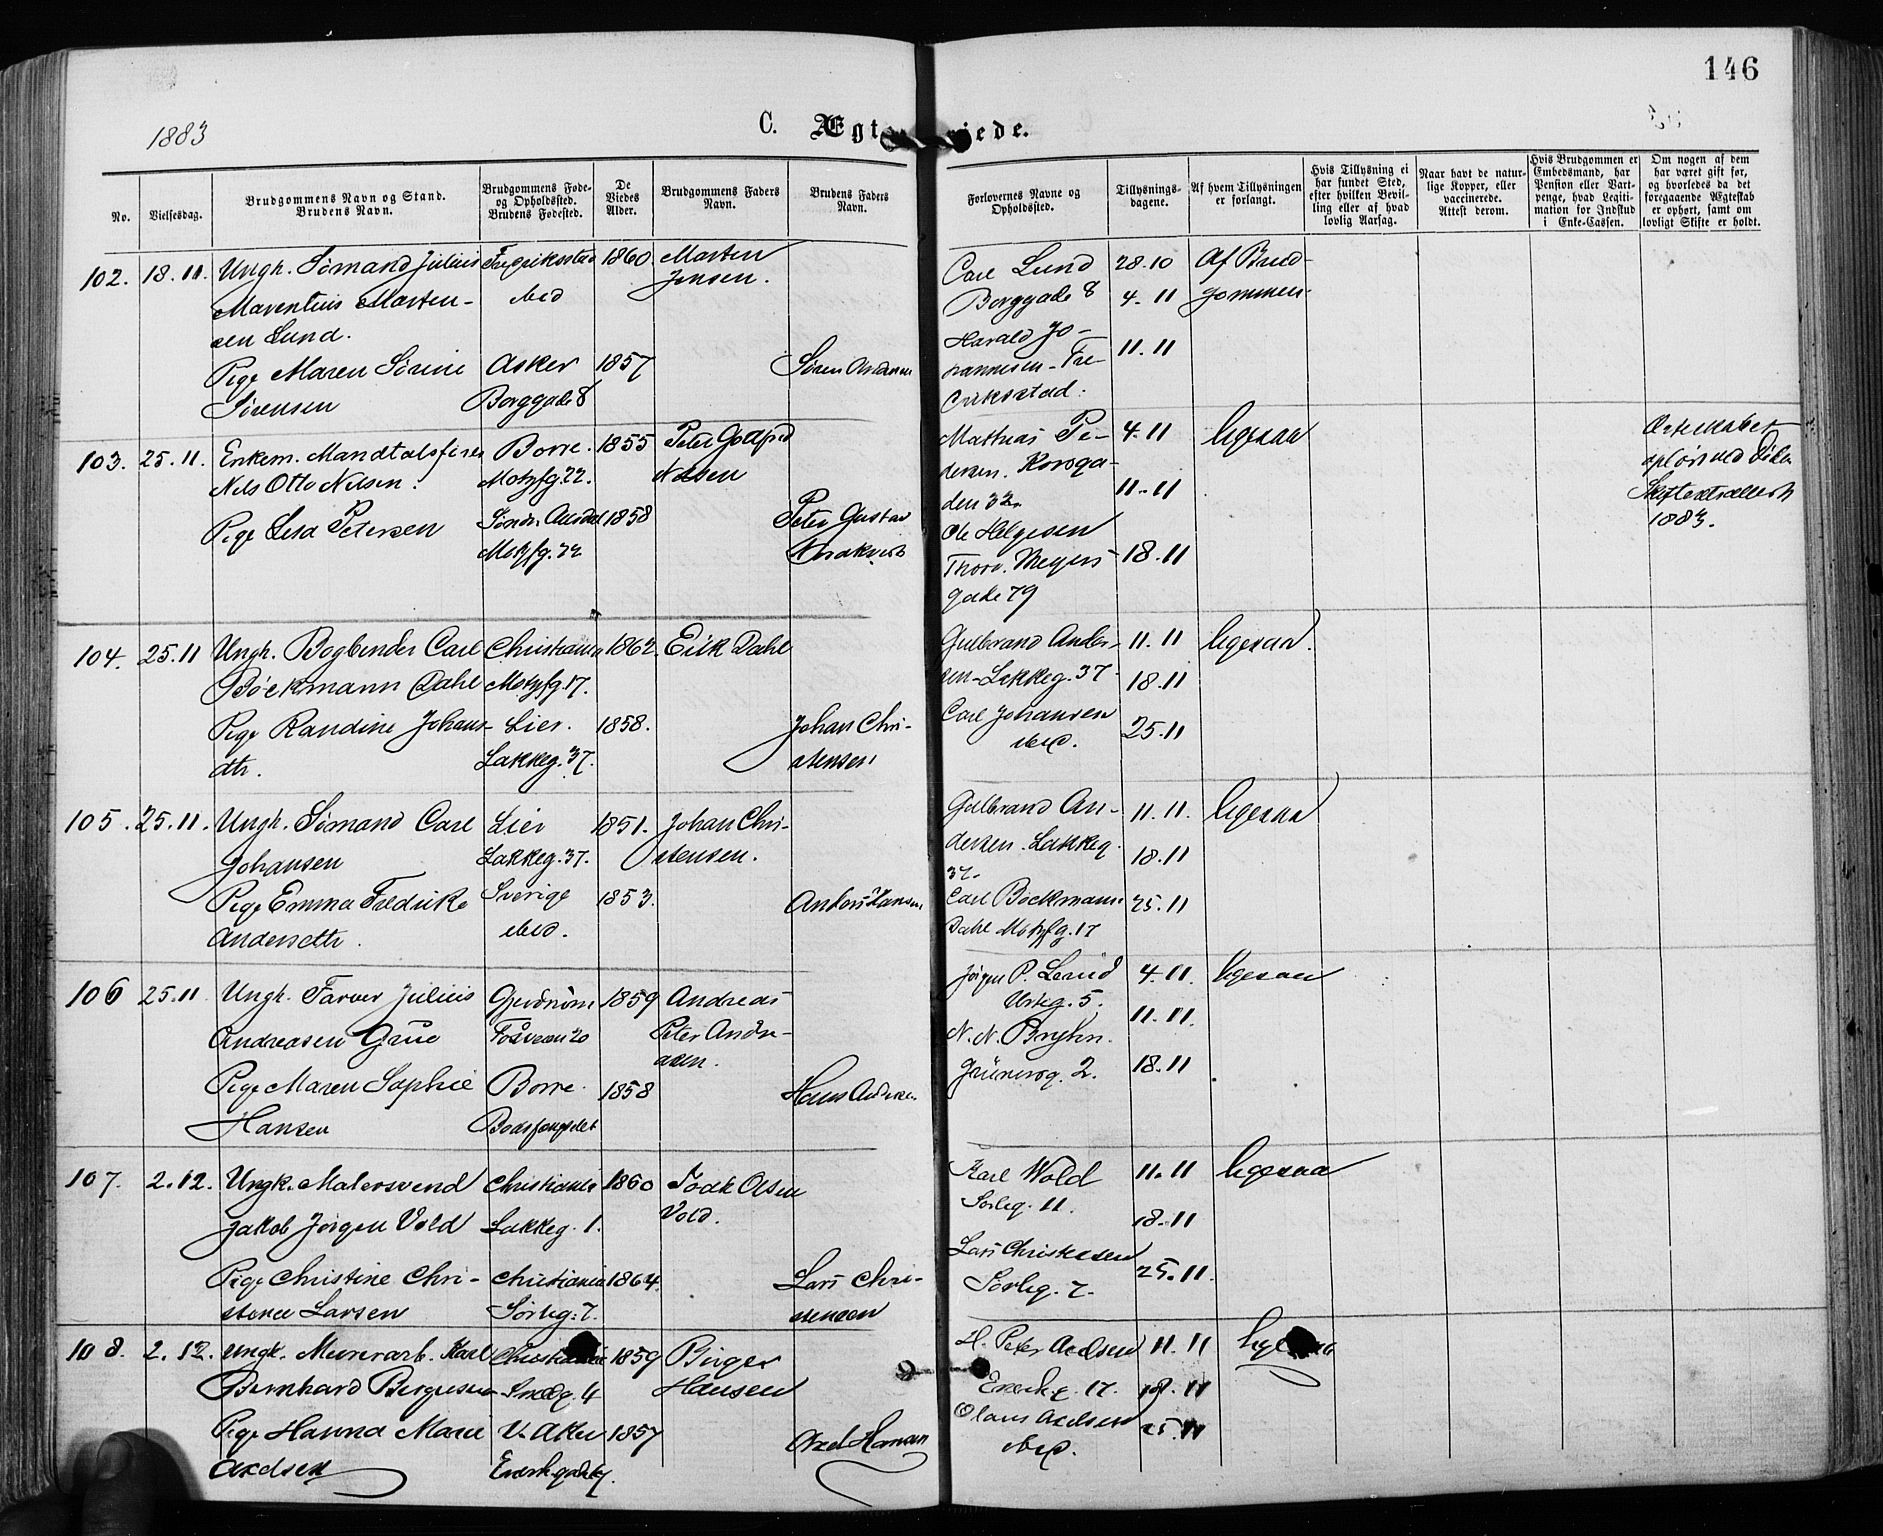 146
1883
C. Ægt
iede.
No.
Vielsesdag.
Brudgommens Navn og Stand.
Brudens Navn.
Brudgommens Føde-
og Opholdssted.
Brudens Fødested.
De
Viedes
Alder.
Brudgommens Faders
Navn.
Brudens Faders
Navn.
Forlovernes Navne og
Opholdssted.
Tillysnings-
dagene.
Af hvem Tillysningen
er forlangt.
Hvis Tillysning ei
har fundet Sted,
efter hvilken Bevil-
ling eller af hvad
lovlig Aarsag.
Naar havt de natur-
lige Kopper, eller
vaccinerede.
Attest derom.
Hvis Brudgommen er
Embedsmand, har
Pension eller Vart-
penge, hvad Legiti-
mation for Indskud
i Enke-Cassen.
Om nogen af dem
har været gift før,
og hvorledes da det
foregaaende Ægteskab
er ophørt, samt om
lovligt Skifte er holdt.
102. 18. 11. Ungk. Sømand Julius 1860 Morten
Marentius Morten- ibid Jensen.
sen Lund.
Pige Maren Sørine Asker 1857 Søren
Sørensen Borggade 8
Carl Lund 28.10 Af Brud-
Borggade 8 4. 11 gommen.
Harald Jo-
hannesen Fre- 11. 11
drikstad.
103. 25. 11. Enkem. Borre. 1855 Peter
Nils Otto Nilsen. Motzfg. 22. Nilsen
Pige Petersen 1858 Peter Gustav
Motzfg. 22
Mathias Pe- 4. 11 ligesaa
dersen. Korsga-
den 32. 11. 11
Ole Helgesen
Thorv. Meyers 18. 11
gade 79
Ægteskabet
opløst ved
1883.
104. 25. 11 Ungk. Bogbinder Carl Christiania 1862. Erik Dahl
Böckmann Dahl Motzfg. 17.
Pige Randine Johans- Lier. 1858. Johan Chri-
dtr. Lakkeg. 37. stensen
Gulbrand Ander- 11. 11 ligesaa.
sen Lakkeg. 37 18. 11
Carl Johansen 25. 11
ibid.
105. 25. 11. Ungk. Sømand Carl Lier 1851. Johan Chri-
Johansen Lakkeg. 37. stensen.
Pige Emma Fredrike Sverige 1853. Anders Hansen
Andersdtr. ibid.
Gulbrand An- 11. 11. ligesaa
dersen. Lakkeg. 18. 11
37.
Carl Böckmann 25. 11
Dahl Motzfg. 17
106 25. 11 Ungk. Farver Julius Gjerdrum 1859 Andreas
Andreasen Grue 20 Peter Andre-
asen.
Pige Maren Sophie Borre. 1858 Hans Andersen
Hansen Bodsfængslet
Jørgen P. Lund 4. 11. ligesaa
Urteg. 5. 11. 11.
N. N. Bryhn.
Grünersg. 2. 18. 11
107. 2. 12. Ungk. Malersvend Christiania 1860 Olsen
Jakob Jørgen Vold Lakkeg. 1. Vold.
Pige Christine Chri- Christiania 1864. Lars Chri-
Larsen Sørligt. 7. stensen
Karl Wold 11. 11 ligesaa
Sørlig. 11. 18. 11
Lars Christensen 25. 11.
Sørlig. 7.
108. 2. 12. Ungk. Murerarb. Karl Christiania 1859 Birger
Bernhard Birgersen Smedg. 4 Hansen
Pige Hanna Marie V. Aker 1857 Axel Hansen
Axelsen
H. Peter Axelsen 11. 11
17. 18. 11
Olaus Axelsen 25. 11
ibid.